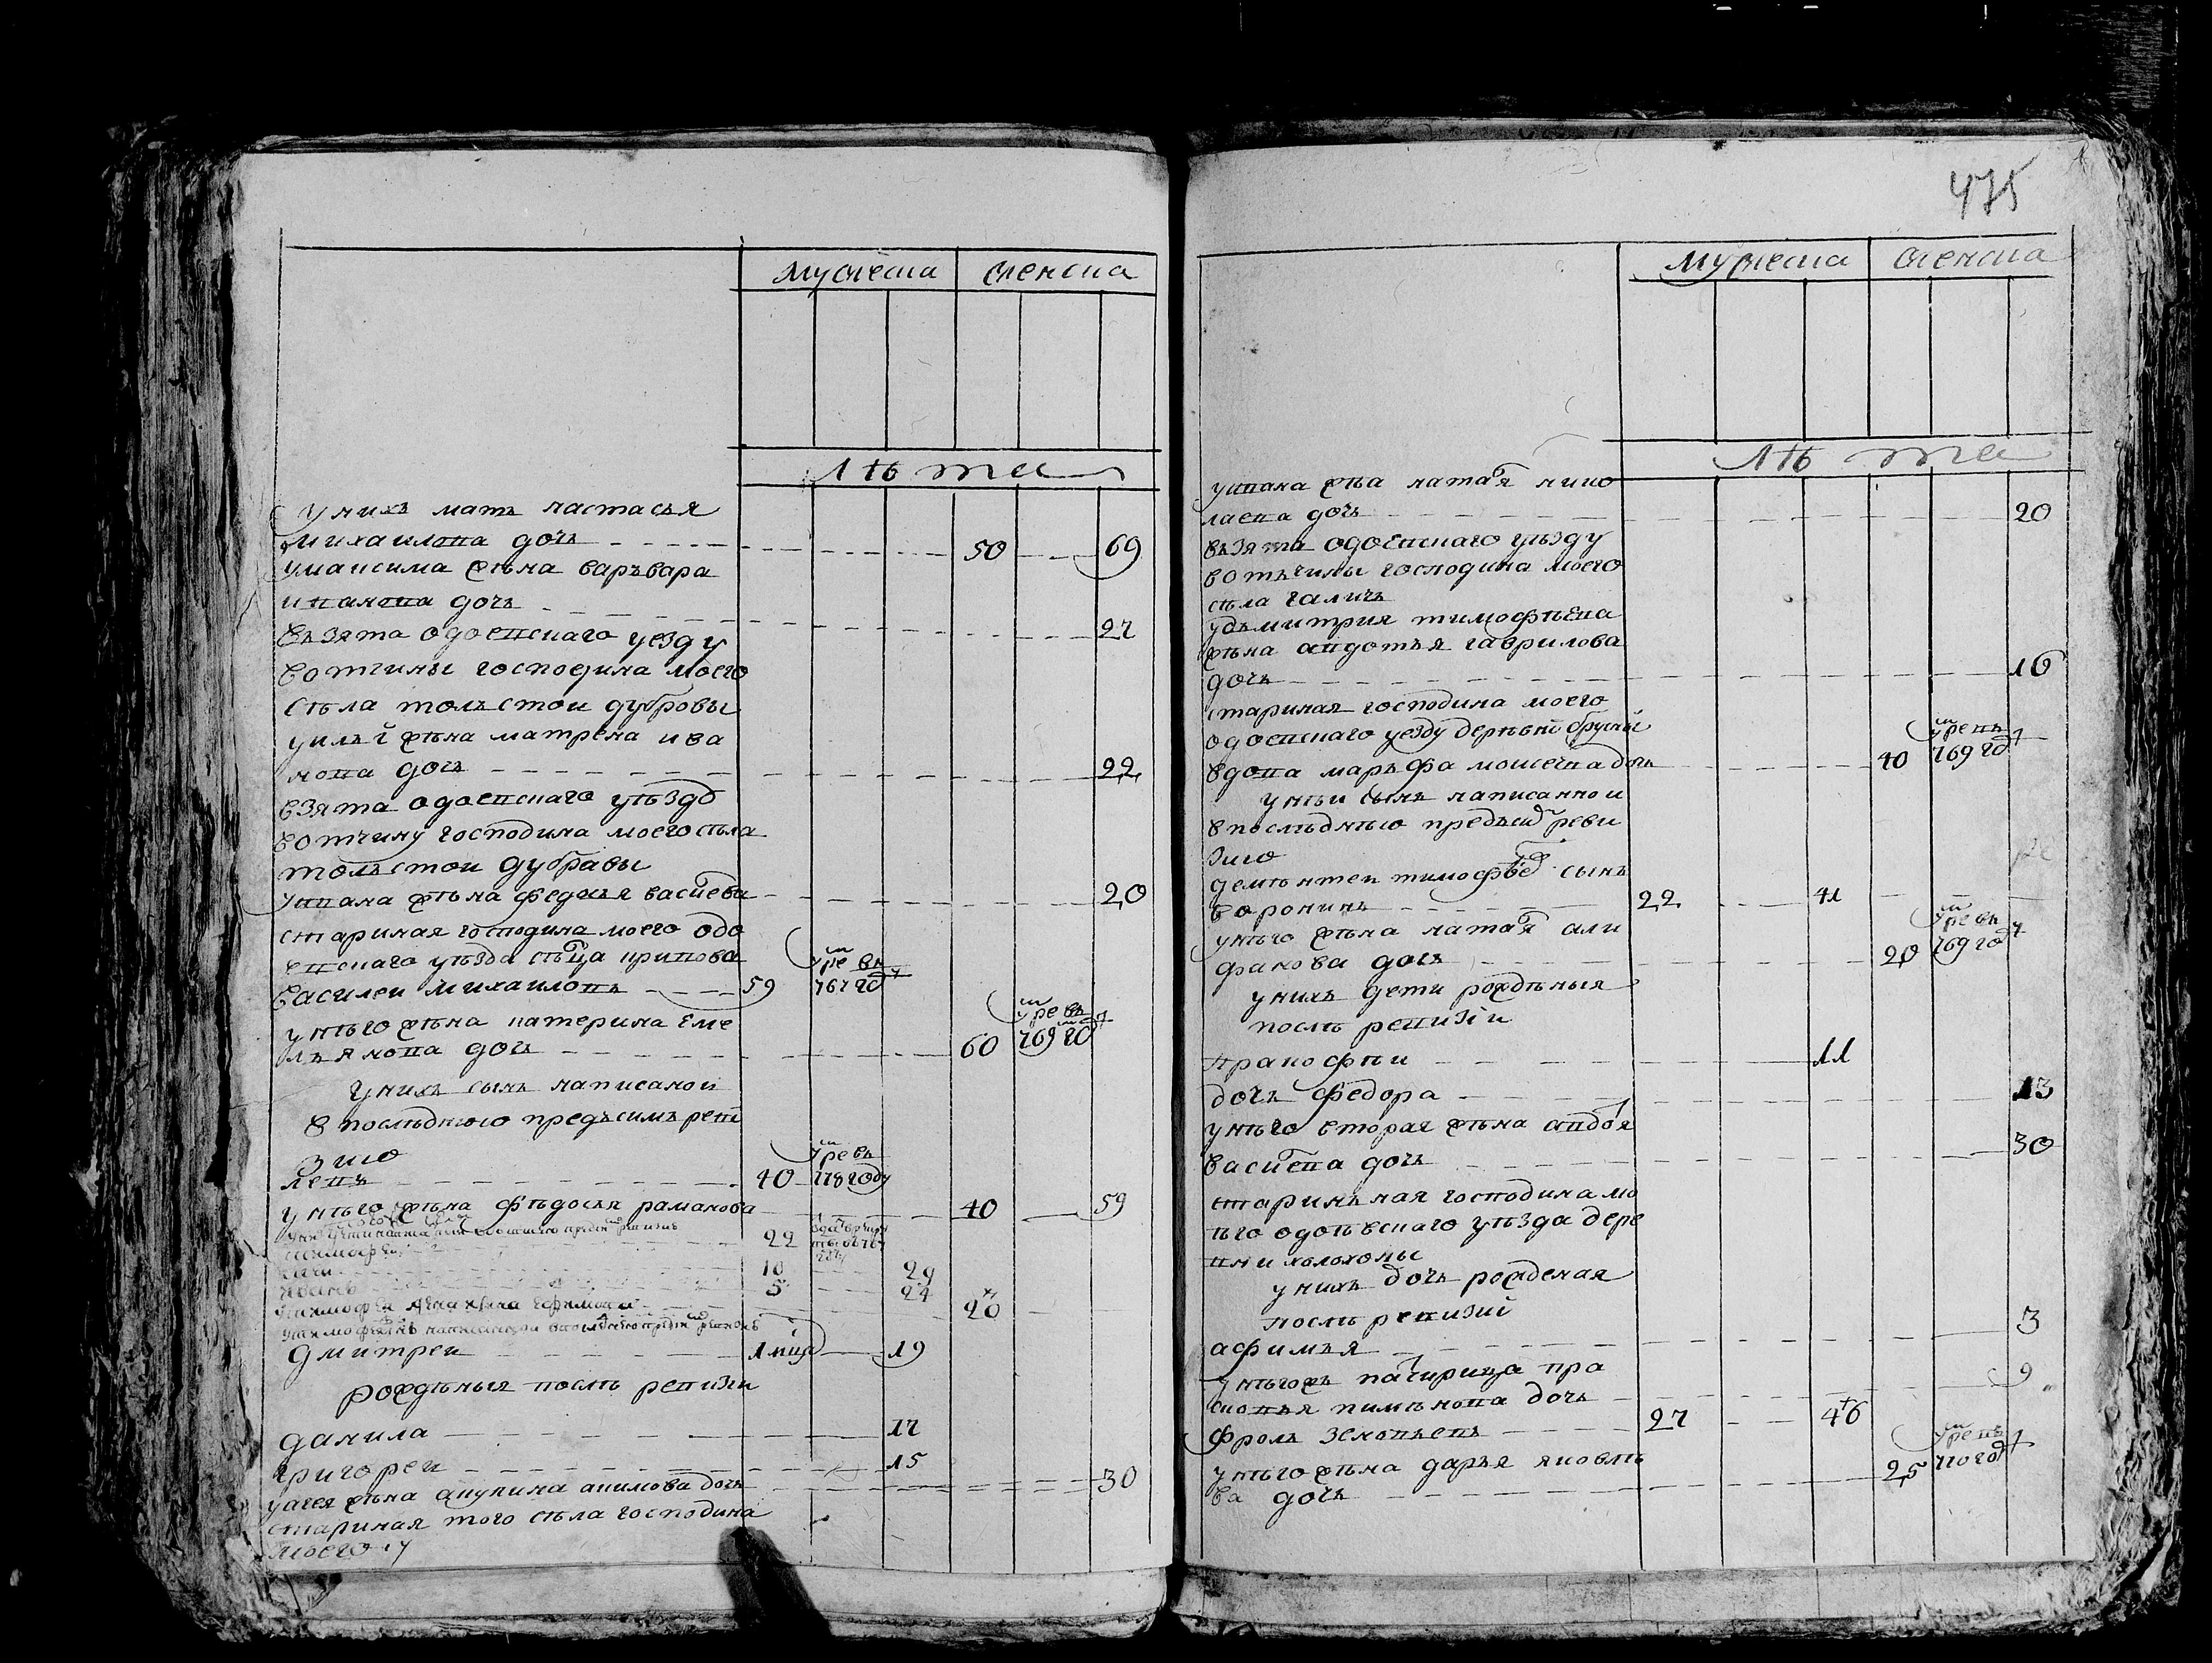 мужеска женска
лѣта
у нихъ мать настасья
михаилова дочь 50 69
у максима жѣна варъвара
иванова дочь 27
възята одоевскаго уезду
вотчины господина моего
сѣла толъстои дубровы
у ильи жѣна матрена ива
нова дочь 22
взята одоевскаго уѣзду
вотчину господина моего сѣла
толъстои дубравы
у ивана жѣна федосья василева 20
стариная господина моего одо
евскаго уѣзда сельца
василеи михаиловъ 59 умре въ 767 году
у нѣго жѣна катерина еме
льянова дочь 60 умре въ 769 году
у нихъ сынъ написанои
в послѣднюю предъ симъ реви
зию
левъ 40 умре въ 778 году
у нѣго жѣна фѣдосья раманова 40 59
22
10 29
осипъ 5 24
20
дмитреи 1 19
рождѣныя послѣ ревизии
данила 17
григореи 15
жѣна акулина акимова дочь 30
стариная того сѣла господина
моего
475
мужеска женска
лѣта
у ивана жѣна наталя нико
лаева дочь 20
възята одоевскаго уѣзду
вотъчины господина моего
сѣла галичь
у дъмитрия тимофѣева
жѣна авдотья гаврилова
дочь 16
стариная господина моего
одоевскаго уезду деревни
вдова маръфа моисеева дочь 40 умре въ 769 году
у нѣи сынъ написаннои
в послѣднѣю предъ сим реви
зию
демѣнтеи тимофѣев сынъ
воронинъ 22 41
у нѣго жѣна наталя али
фанова дочь 20 умре въ 769 году
у нихъ дети рождѣныя
послѣ ревизии
пракофеи 11
дочь федора 13
у нѣго вторая жѣна авдотя
василева дочь 30
старинъная господина мо
ѣго одоѣвскаго уѣзда дере
вни холохоны
у нихъ дочь рожденая
послѣ ревизии
афимья 3
у нѣгожъ патчирица пра
сковья пимѣнова дочь 9
фролъ зеновьевъ 27 46
у нѣго жѣна дарья яковлѣ
ва дочь 25 умре въ 770 году